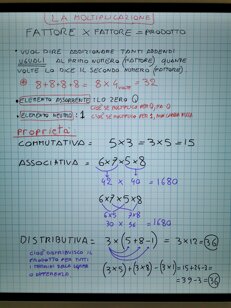 LA MOLTIPLICAZIONE
FATTORE X FATTORE = PRODOTTO
• VUOL DIRE ADDIZIONARE TANTI ADDENDI
UGUALI AL PRIMO NUMERO (FATTORE) QUANTE
VOLTE LO DICE IL SECONDO NUMERO (FATTORE).
• 8+8+8+8 = 8 x 4 volte = 32
• ELEMENTO ASSORBENTE: LO ZERO 0
CIOÈ SE MOLTIPLICO PER 0, FA 0
• ELEMENTO NEUTRO: 1 CIOÈ SE MOLTIPLICO PER 1, NON CAMBIA
Proprietà
COMMUTATIVA = 5x3 = 3x5 = 15
ASSOCIATIVA = 6x7x5x8
42 x 40 = 1680
6x7x5x8
6x5 7x8
30 x 56 = 1680
DISTRIBUTIVA = 3x(5+8-1) = 3x12 = 36
CIOÈ DISTRIBUISCO IL
PRODOTTO PER TUTTI
I TERMINI DELLA SOMMA
O DIFFERENZA
(3x5)+(3x8)-(3x1)=15+24-3=
=39-3=36